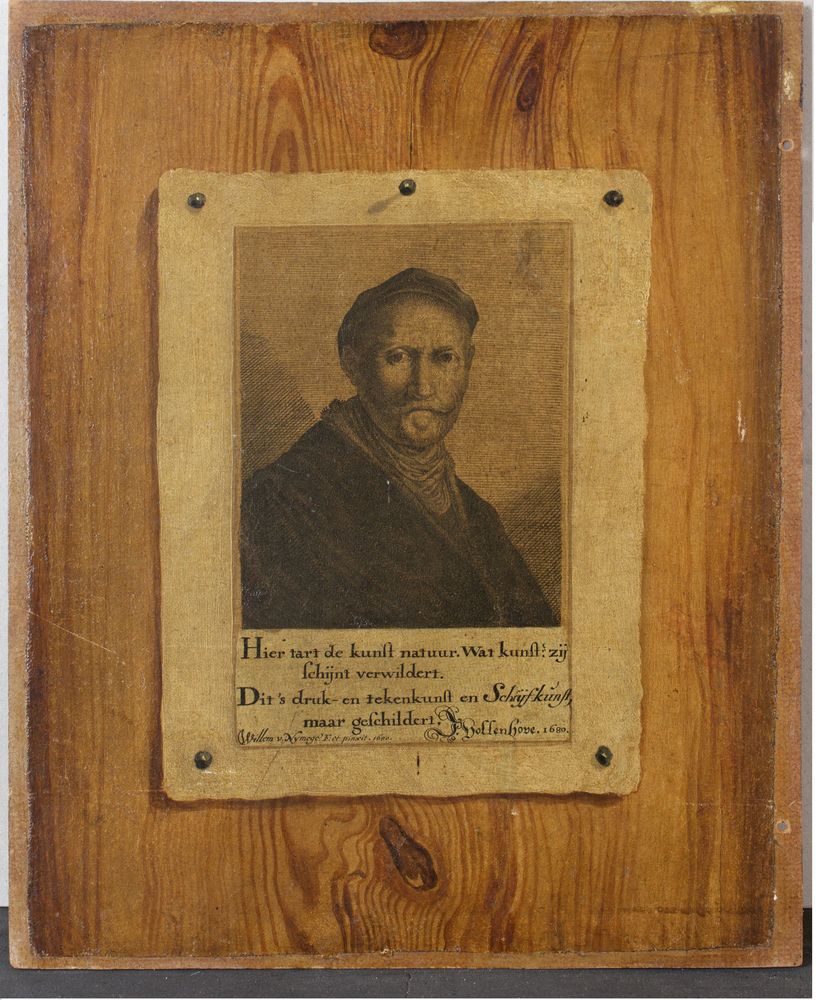 Hier tart de kunst natuur. Wat kunst? zij
schijnt verwildert.
Dit's druk- en tekenkunst en Schrijfkunst,
maar geschildert. J. Vollenhove. 1680.
Willem v. Nymege F. et pinxit. 1680.